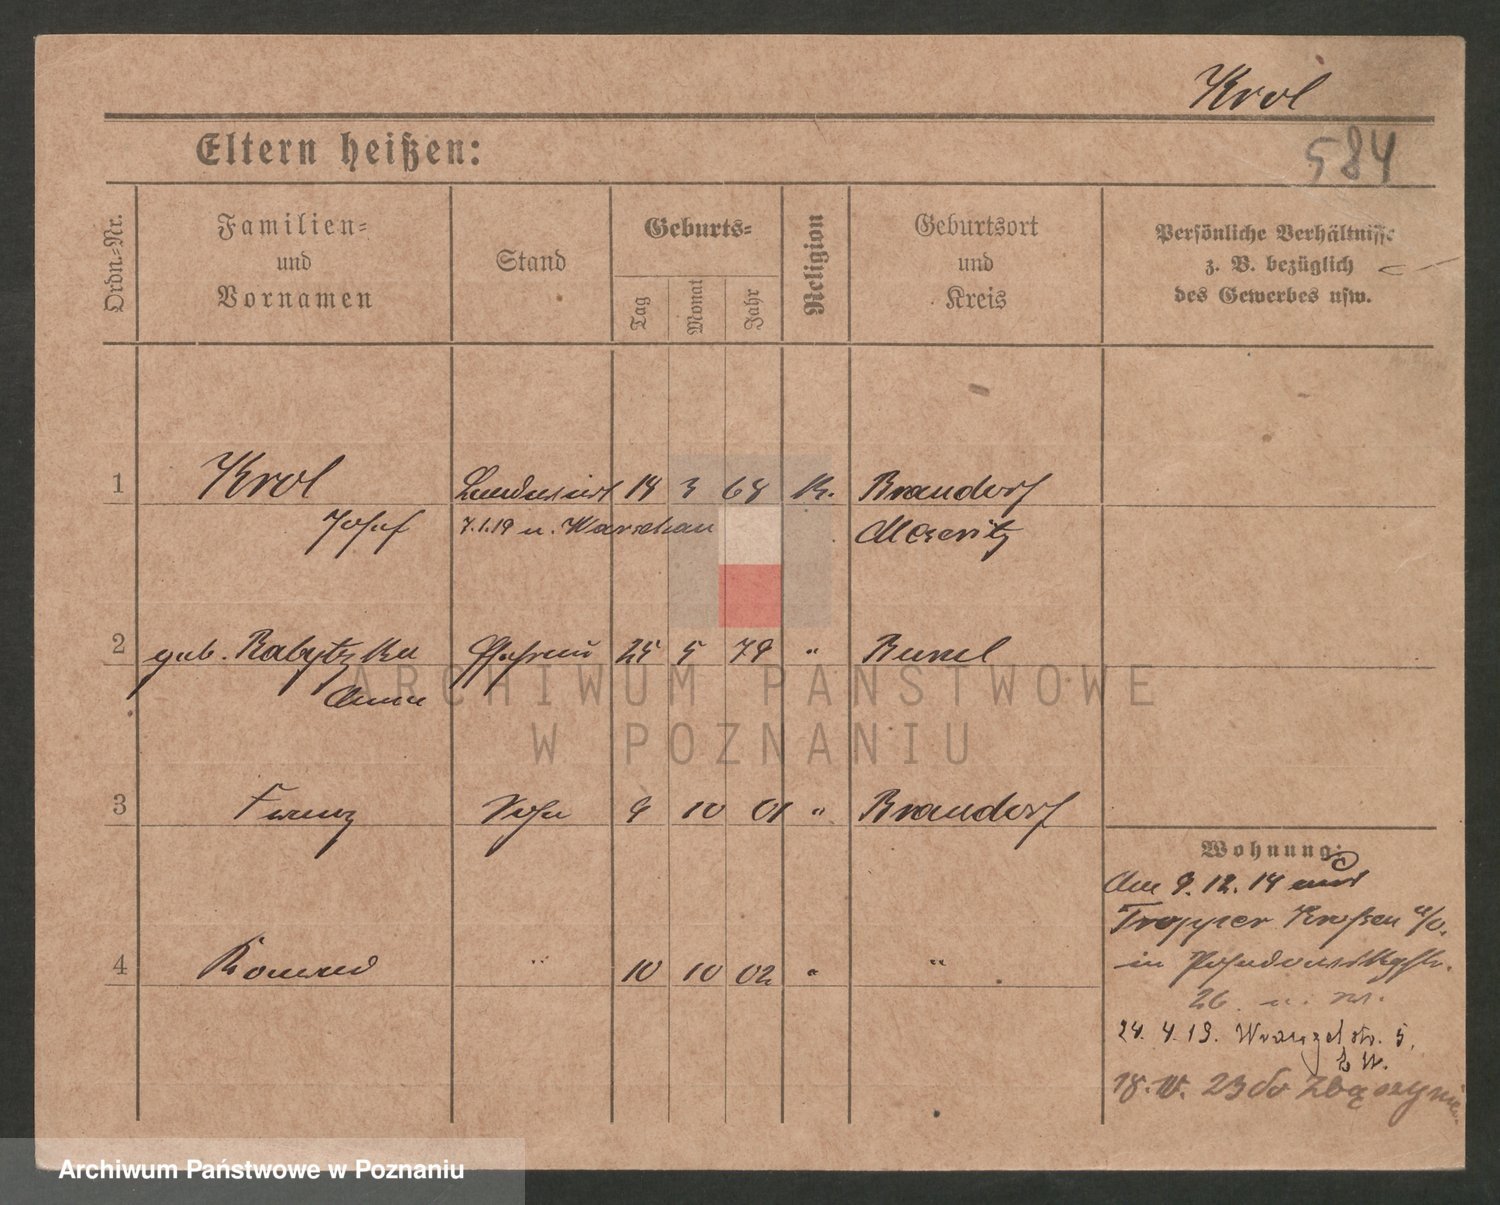 Krol
584
Eltern heißen:
Ordn.-Nr.
Familien-
und
Vornamen
Stand
Geburts-
Tag
Monat
Jahr
Religion
Geburtsort
und
Kreis
Persönliche Verhältnisse
z. B. bezüglich
des Gewerbes usw.
1 Krol 14 3 68 K. Brandorf
Josef 7.1.19 n. Warschau Meseritz
2 geb. 25 5 79 "
Anna
3 Franz Sohn 9 10 01 " Brandorf
4 Konrad " 10 10 02 " "
Wohnung:
Am 9. 12. 14 aus
Tropper Kroßen a/O.
in
26
24. 4. 19. Wrangelstr. 5,
18. IV. 23 do Zbąszynia
ARCHIWUM PAŃSTWOWE
W POZNANIU
Archiwum Państwowe w Poznaniu